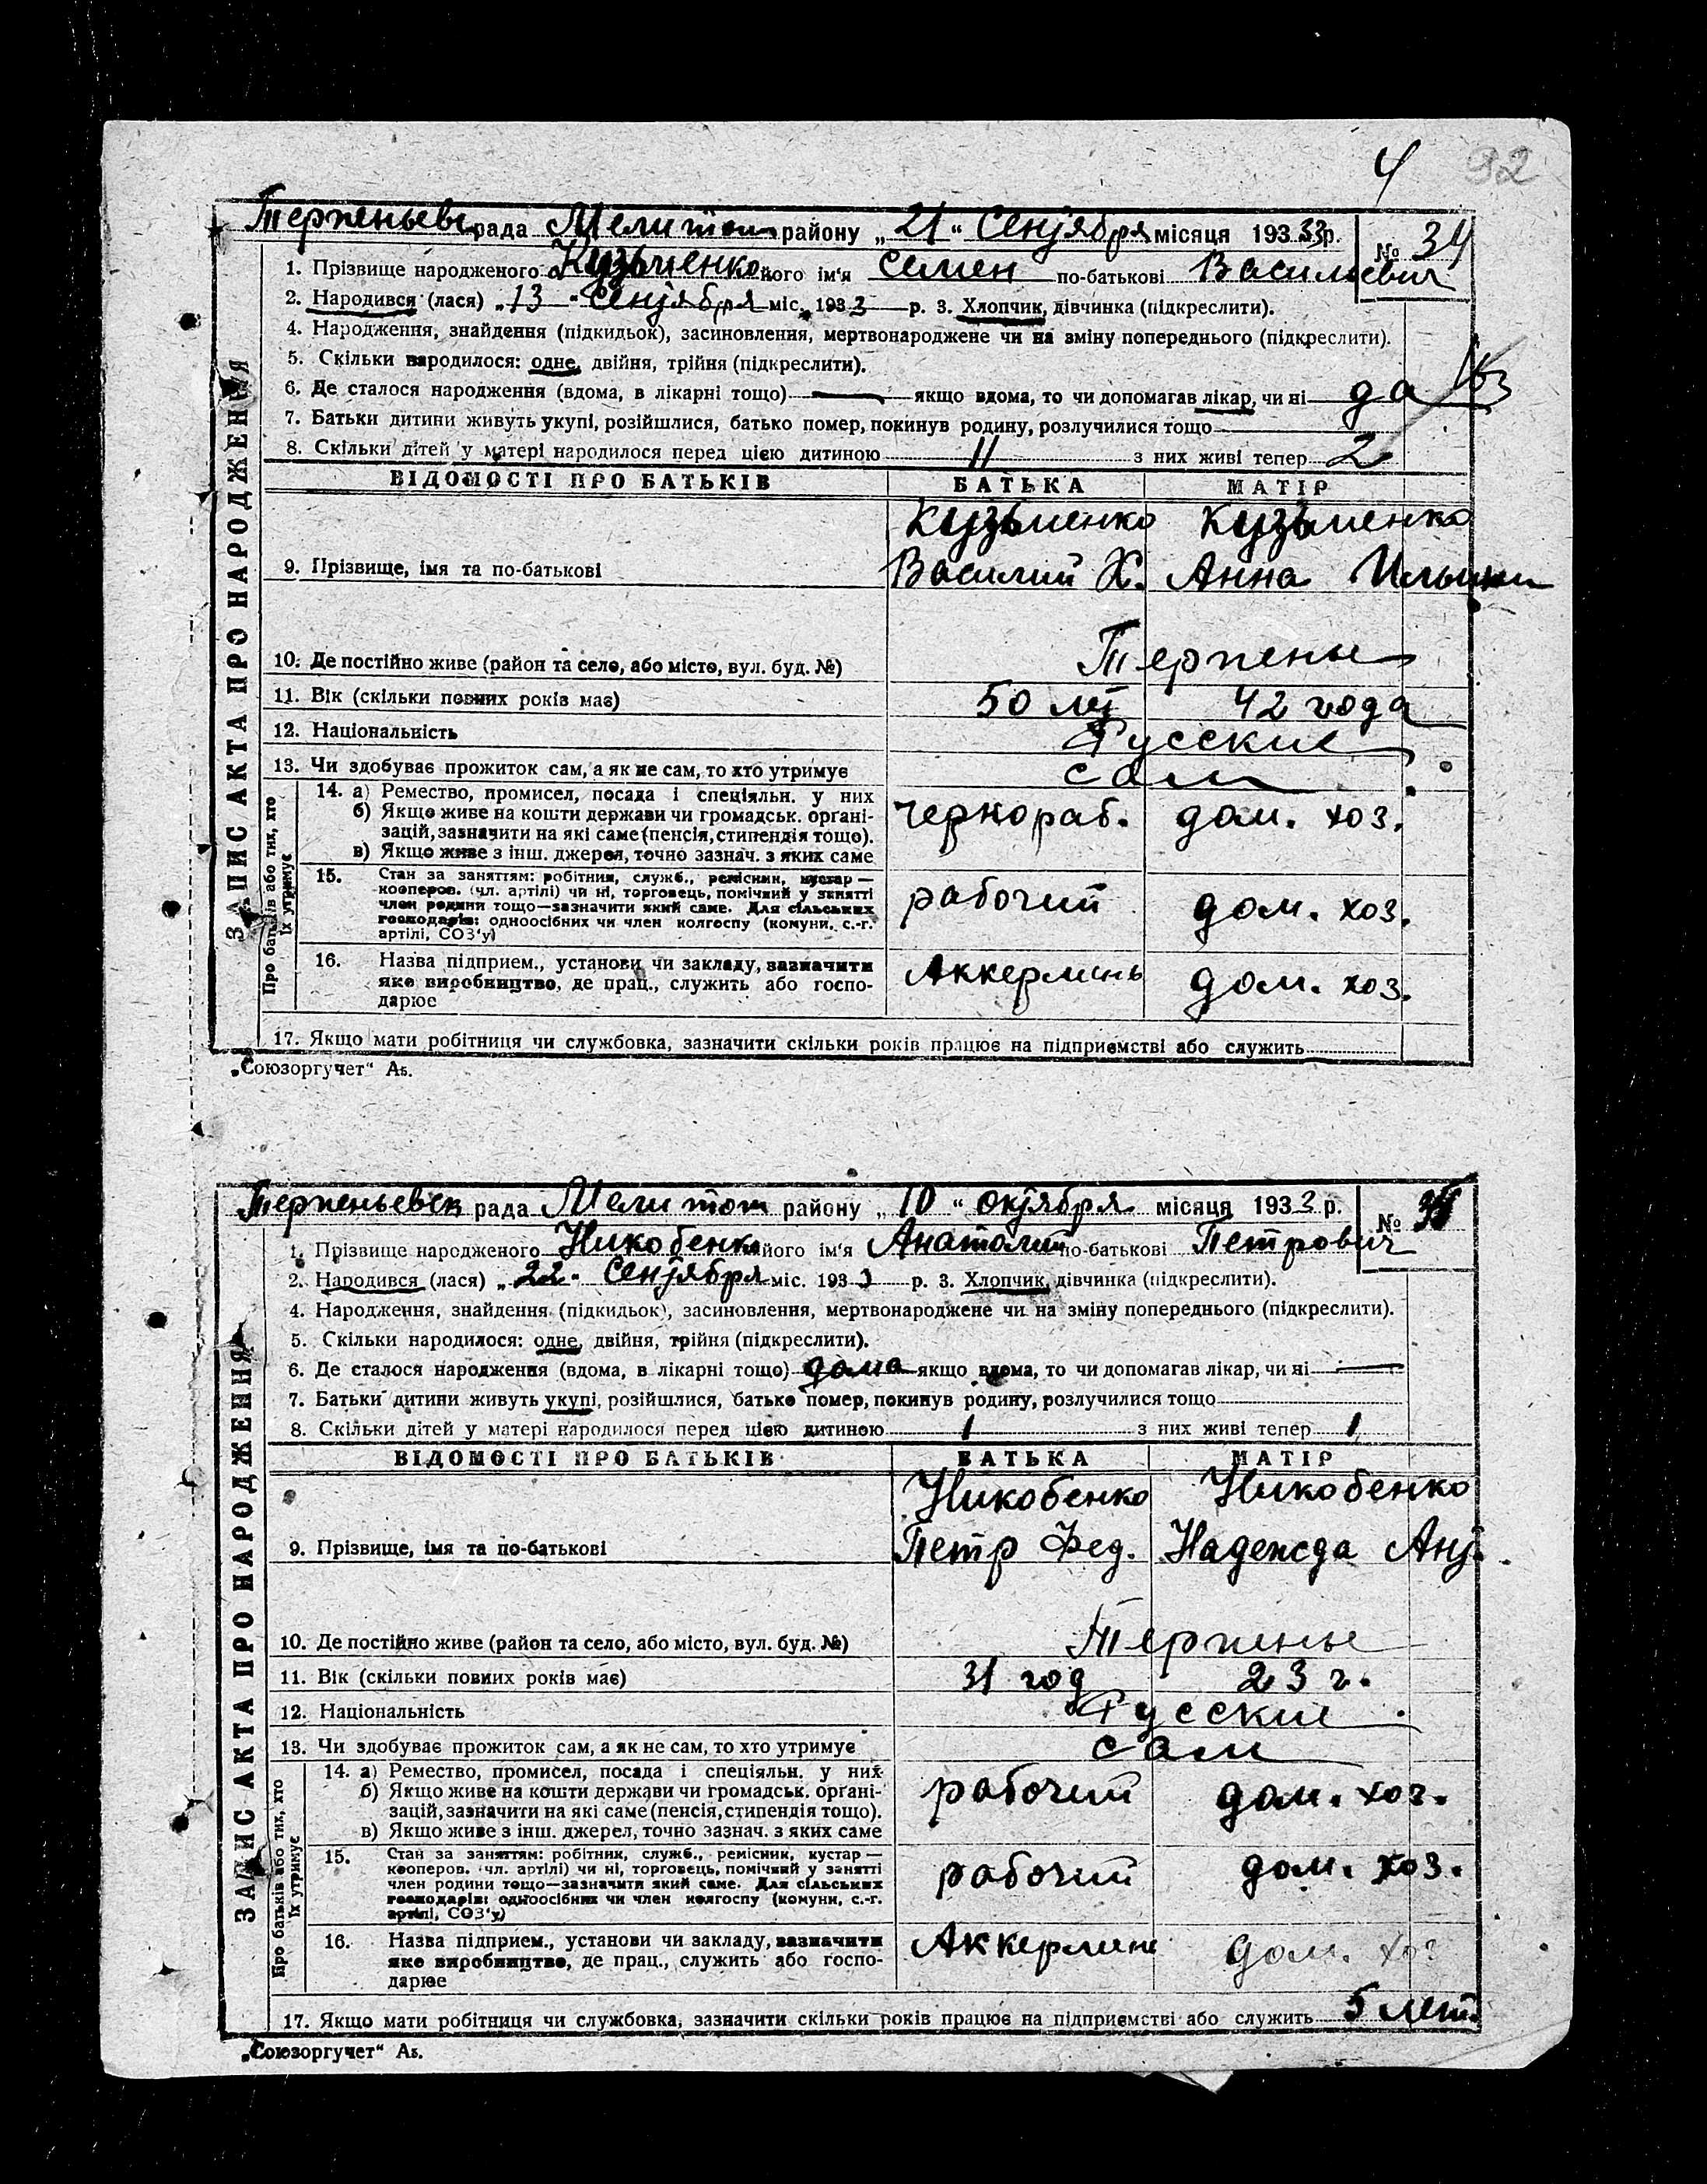 4 92
Терпеньевс рада Мелитоп району „21“ Сентября місяця 1933 р. № 34
1. Прізвище народженого Кузьменко його ім'я Семен по-батькові Васильевич
2. Народився (лася) „13“ Сентября міс. 1933 р. 3. Хлопчик, дівчинка (підкреслити).
4. Народження, знайдення (підкидьок), засиновлення, мертвонароджене чи на зміну попереднього (підкреслити).
5. Скільки народилося: одне, двійня, трійня (підкреслити).
6. Де сталося народження (вдома, в лікарні тощо) якщо вдома, то чи допомагав лікар, чи ні да
7. Батьки дитини живуть укупі, розійшлися, батько помер, покинув родину, розлучилися тощо
8. Скільки дітей у матері народилося перед цією дитиною 11 з них живі тепер 2
ВІДОМОСТІ ПРО БАТЬКІВ БАТЬКА МАТІР
Кузьменко Кузьменко
9. Прізвище, імя та по-батькові Василий Х. Анна
10. Де постійно живе (район та село, або місто, вул. буд. №) Терпенье
11. Вік (скільки повних років має) 50 лет 42 года
12. Національність Русские
13. Чи здобуває прожиток сам, а як не сам, то хто утримує сам
14. а) Ремество, промисел, посада і спеціяльн. у них
б) Якщо живе на кошти держави чи громадськ. органі-
зацій, зазначити на які саме (пенсія, стипендія тощо).
в) Якщо живе з інш. джерел, точно зазнач. з яких саме
чернораб. дом. хоз.
15. Стан за заняттям: робітник, служб., ремісник, кустар—
кооперов. (чл. артілі) чи ні, торговець, помічний у занятті
член родини тощо—зазначити який саме. Для сільських
господарів: одноосібних чи член колгоспу (комуни, с.-г.
артілі, СОЗ'у)
рабочий дом. хоз.
16. Назва підприєм., установи чи закладу, зазначити
яке виробництво, де прац., служить або госпо-
дарює
Аккермень дом. хоз.
17. Якщо мати робітниця чи службовка, зазначити скільки років працює на підприємстві або служить
ЗАПИС АКТА ПРО НАРОДЖЕННЯ
Про батьків або тих, хто
їх утримує
„Союзоргучет“ Аб.
Терпеньевск рада Мелитоп району „10“ октября місяця 1933 р. № 35
1. Прізвище народженого Никобенко його ім'я Анатолий по-батькові Петрович
2. Народився (лася) „22“ Сентября міс. 1933 р. 3. Хлопчик, дівчинка (підкреслити).
4. Народження, знайдення (підкидьок), засиновлення, мертвонароджене чи на зміну попереднього (підкреслити).
5. Скільки народилося: одне, двійня, трійня (підкреслити).
6. Де сталося народження (вдома, в лікарні тощо) дома якщо вдома, то чи допомагав лікар, чи ні
7. Батьки дитини живуть укупі, розійшлися, батько помер, покинув родину, розлучилися тощо
8. Скільки дітей у матері народилося перед цією дитиною 1 з них живі тепер 1
ВІДОМОСТІ ПРО БАТЬКІВ БАТЬКА МАТІР
Никобенко Никобенко
9. Прізвище, імя та по-батькові Петр Фед. Надежда Ант.
10. Де постійно живе (район та село, або місто, вул. буд. №) Терпенье
11. Вік (скільки повних років має) 31 год 23 г.
12. Національність Русские
13. Чи здобуває прожиток сам, а як не сам, то хто утримує сам
14. а) Ремество, промисел, посада і спеціяльн. у них
б) Якщо живе на кошти держави чи громадськ. органі-
зацій, зазначити на які саме (пенсія, стипендія тощо).
в) Якщо живе з інш. джерел, точно зазнач. з яких саме
рабочий дом. хоз.
15. Стан за заняттям: робітник, служб., ремісник, кустар—
кооперов. (чл. артілі) чи ні, торговець, помічний у занятті
член родини тощо—зазначити який саме. Для сільських
господарів: одноосібних чи член колгоспу (комуни, с.-г.
артілі, СОЗ'у)
рабочий дом. хоз.
16. Назва підприєм., установи чи закладу, зазначити
яке виробництво, де прац., служить або госпо-
дарює
Аккермене дом. хоз
17. Якщо мати робітниця чи службовка, зазначити скільки років працює на підприємстві або служить 5 лет.
ЗАПИС АКТА ПРО НАРОДЖЕННЯ
Про батьків або тих, хто
їх утримує
„Союзоргучет“ Аб.